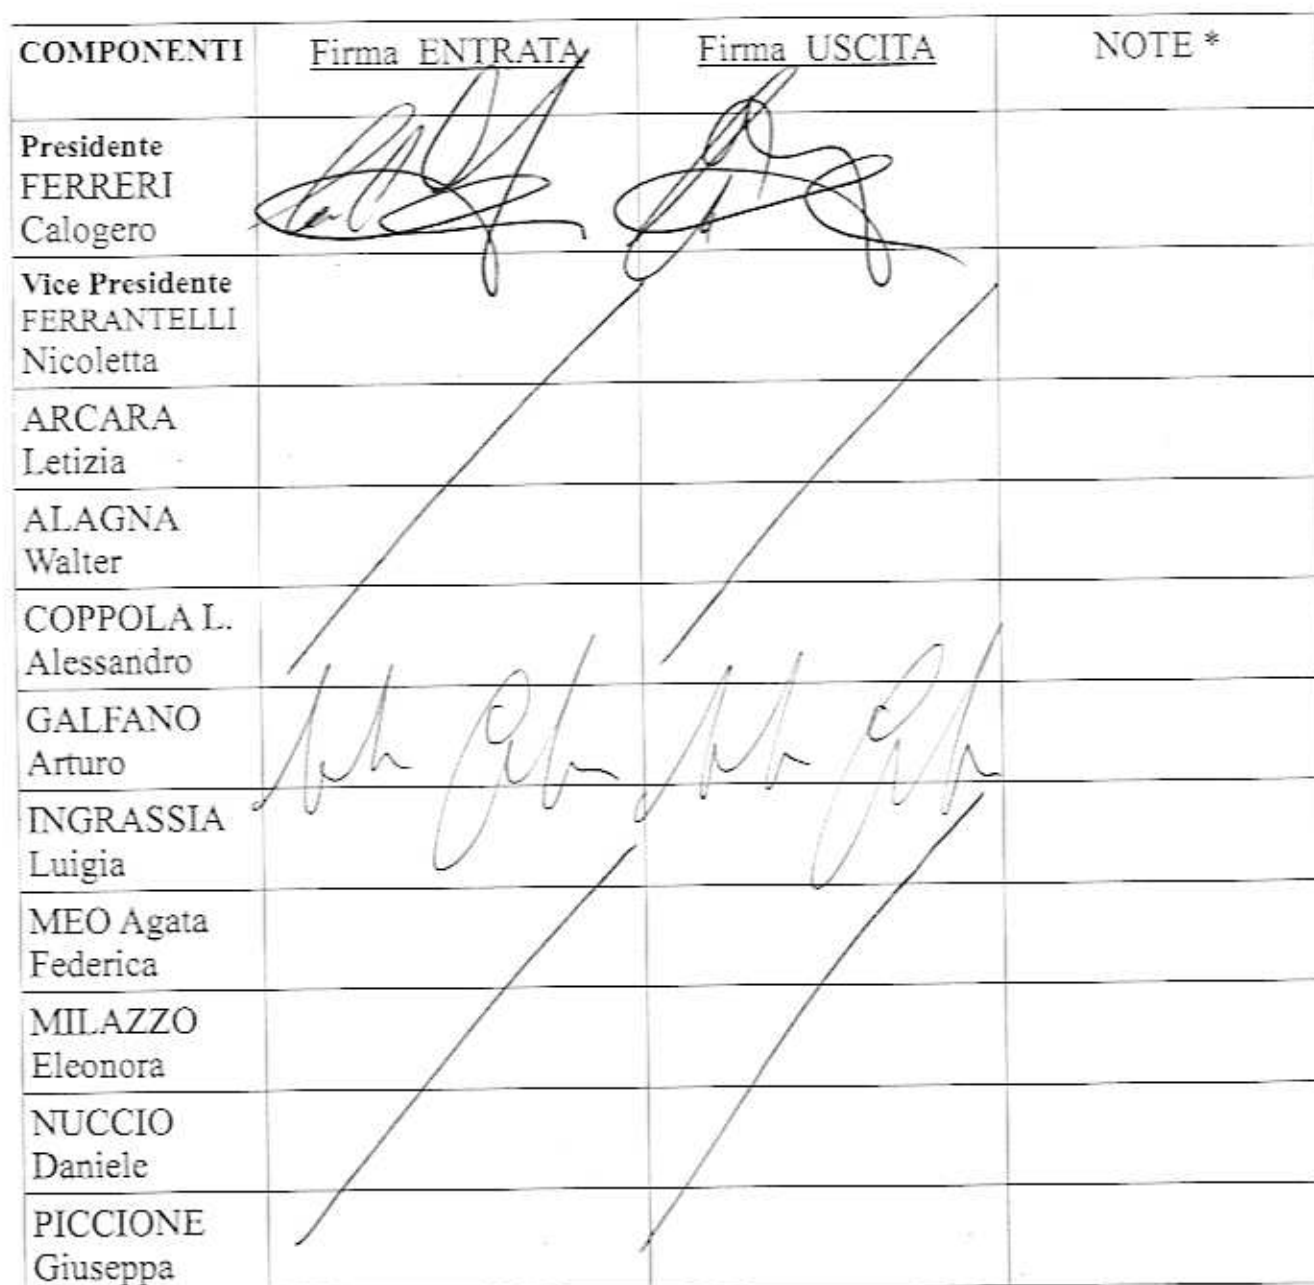 COMPONENTI Firma ENTRATA Firma USCITA NOTE *
Presidente
FERRERI
Calogero
Vice Presidente
FERRANTELLI
Nicoletta
ARCARA
Letizia
ALAGNA
Walter
COPPOLA L.
Alessandro
GALFANO
Arturo
INGRASSIA
Luigia
MEO Agata
Federica
MILAZZO
Eleonora
NUCCIO
Daniele
PICCIONE
Giuseppa